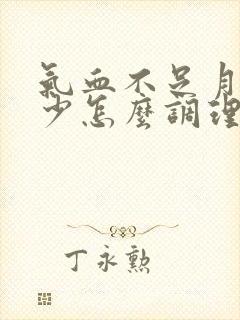 氣血不足月
少怎麼調理
丁永勲